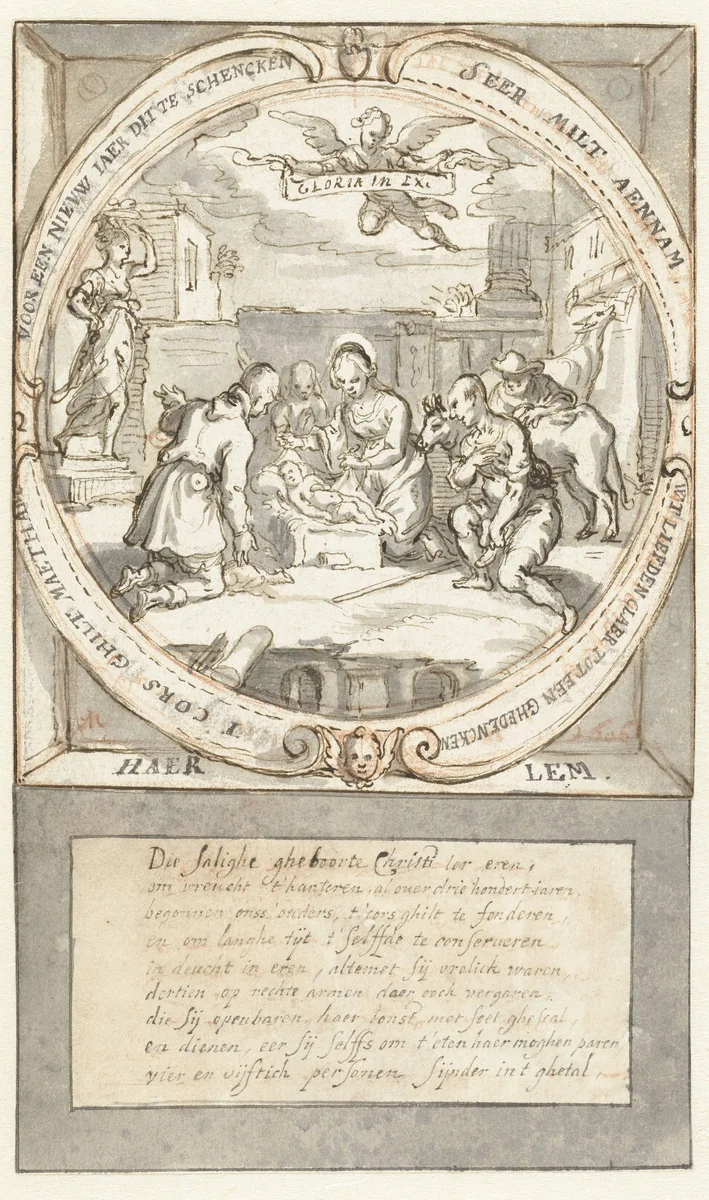 VOOR EEN NIEUW IAER DIT TE SCHENCKEN
SEER MILT AENNAM
GLORIA IN EX.
WT LIEFDEN CLAER TOT EEN GHEDENCKEN
T CORS GHILT MAETHAM
HAER LEM.
Die salighe gheboorte Christi ter eren,
om vreucht t'hanteren, al over drie hondert iaren,
begonnen onse ouders, t'cors ghilt te fonderen,
en om langhe tijt t'selffde te conserveren
in deucht in eren, altemet sij vrolick waren,
dertien op rechte armen daer oock vergaren,
die sij openbaren haer Const, met soet ghescal,
en dienen, eer sij selffs om t'eten haer moghen paren
vier en vijftich personen sijnder int ghetal